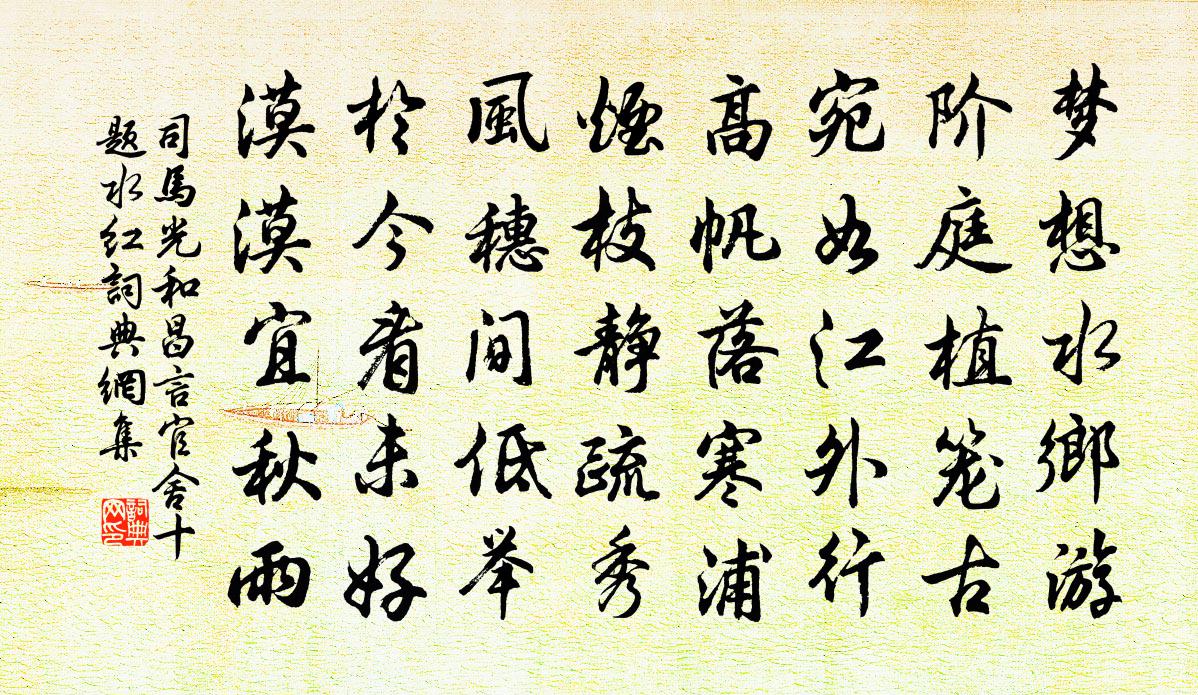 梦想水鄉游
阶庭植笼古
宛如江外行
高帆落寒浦
煙枝静疏秀
風穗间低举
於今看未好
漠漠宜秋雨
司馬光和昌言官舍十
题水红詞典網集
詞典网印